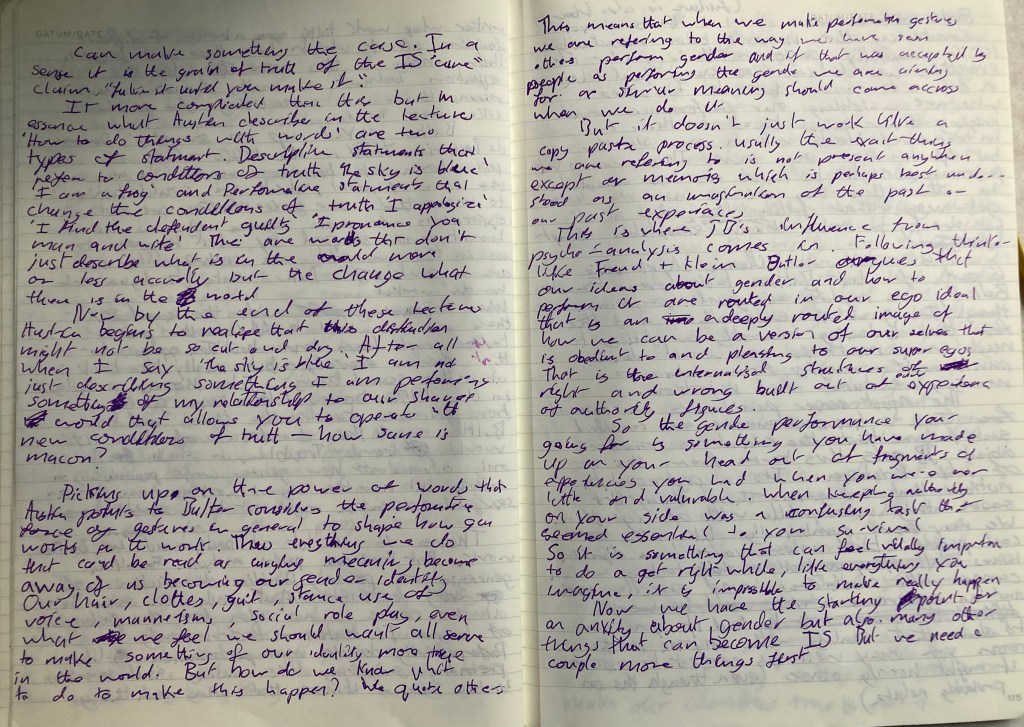 DATUM/DATE
can make something the case. In a
sense it is the grain of truth of the IS "cure"
claim, "fake it until you make it".
It more complicated than this but in
essence what Austen describe in the lectures
'How to do things with words' are two
types of statment. Descriptive statments that
refer to conditions of truth 'The sky is blue'
'I am a frog' and Performative statments that
change the conditions of truth 'I appologize'
'I find the defendent guilty' 'I pronounce you
man and wife'. Thei are words tht don't
just describe what is in the world more
or less accuratly but the change what
there is in the world
Now by the end of these lectures
Austin begins to realize that this distinction
might not be so cut and dry. After all
when I say 'The sky is blue' I am not
just describing something I am performing
something of my relationship to our shared
world that allows you to operate with
new conditions of truth — how sure is
macon?
Picking up on the power of words that
Austin points to Butler considers the performative
force of gestures in general to shape how our
world in it work. Then everything we do
that could be read as carrying meaning, become
away of us becoming our gender identity
Our hair, clothes, gait, stance use of
voice, mannerisms, social role play, even
what we feel we should want all serve
to make something of our identity more true
in the world. But how do we know what
to do to make this happen? We quote others
This means that when we make performative gestures
we are referring to the way we have seen
others perform gender and if that was accepted by
people as performing the gender we are aiming
for a similar meaning should come accross
when we do it
But it doesn't just work like a
copy pasta process. usully the exait thing
we are refering to is not present anywhen
except as memories which is perhaps best under-
stood as an imagination of the past or
our past experiences
This is where JB's influence from
psycho-analysis comes in. Following thinkers
like Freud + Klein Butler argues that
our ideas about gender and how to
perform it are routed in our ego ideal
that is an a deeply routed image of
how we can be a version of our selves that
is obedient to and pleasing to our super egos
That is the internalised structures of
right and wrong built out of experience
of authority figures.
So the gender performance your
going for is something you have made
up in your head out of fragments of
experiences you had when you were over
little and vulnurable. When keeping authority
on your side was a confusing task that
seemed essential to your survival
So it is something that can feel vitally importan
to do a get right while, like everything you
imagine, it is impossible to make really happen
Now we have the starting point for
an anxity about gender but also many other
things that can become IS But we need a
couple more things first
115